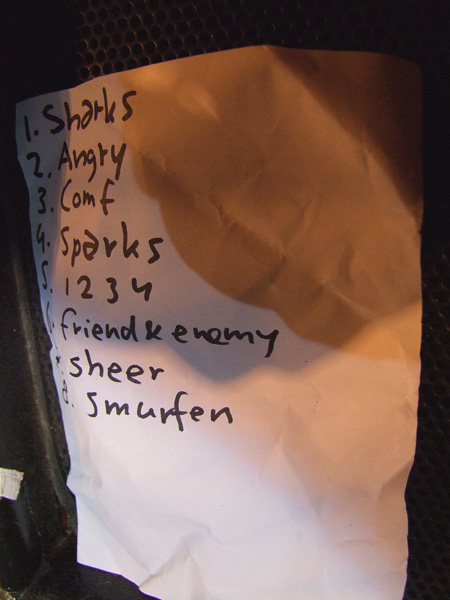 1. Sharks
2. Angry
3. Comf
4. Sparks
5. 1234
6. friend & enemy
7. sheer
8. Smurfen